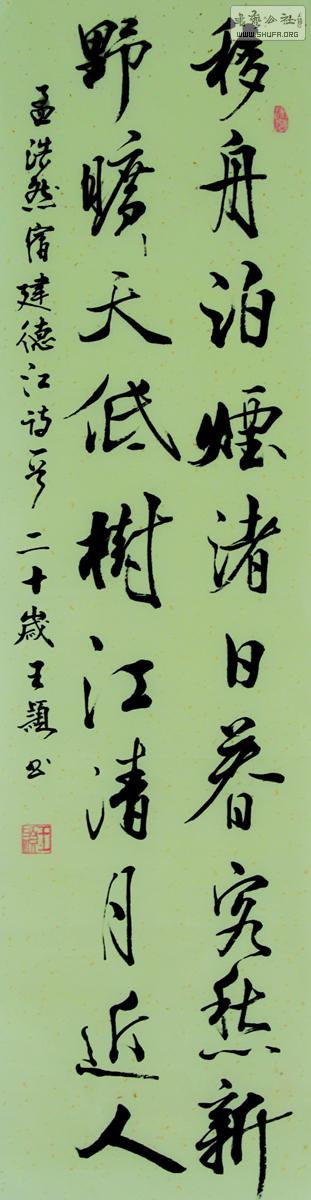 移舟泊煙渚日暮客愁新
野曠天低樹江清月近人
孟浩然宿建德江詩一首二十歲王穎書
書法公社
WWW.SHUFA.ORG